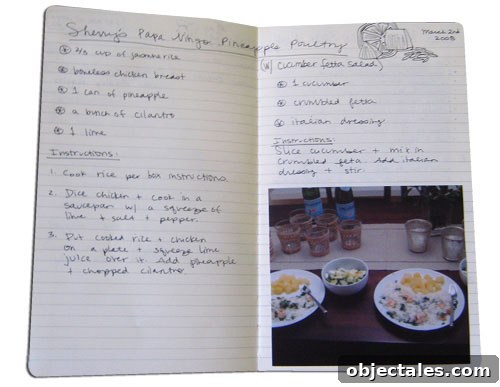 Sherry's Papa Pineapple Poultry
cup of jasmine rice
boneless chicken breast
1 can of pineapple
a bunch of cilantro
1 lime
Instructions:
1. Cook rice per box instructions.
2. Dice chicken + cook in a
saucepan w/ a squeeze of
lime + salt + pepper.
3. Put cooked rice + chicken
on a plate + squeeze lime
juice over it. Add pineapple
+ chopped cilantro.
March 2nd
2008
(w/ cucumber fetta salad)
1 cucumber
crumbled fetta
italian dressing
Instructions:
Slice cucumber + mix in
crumbled feta. Add italian
dressing + stir.
objectales.com